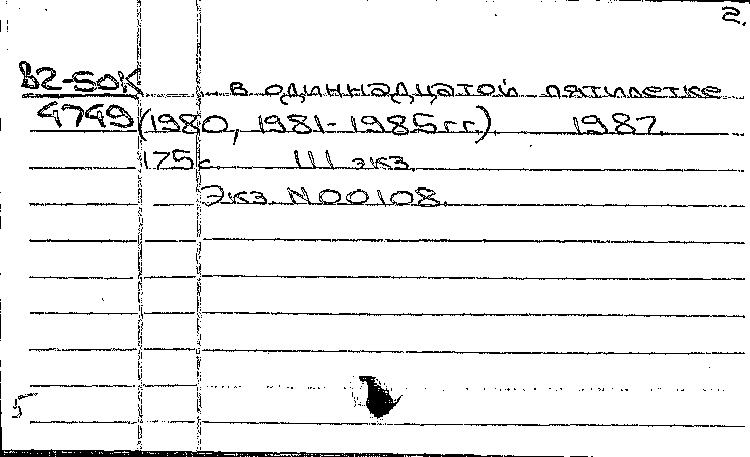 2.
В2-50К ... в одиннадцатой пятилетке
4749 (1980, 1981-1985гг). 1987.
175с. 111 экз.
Экз. N00108.
5